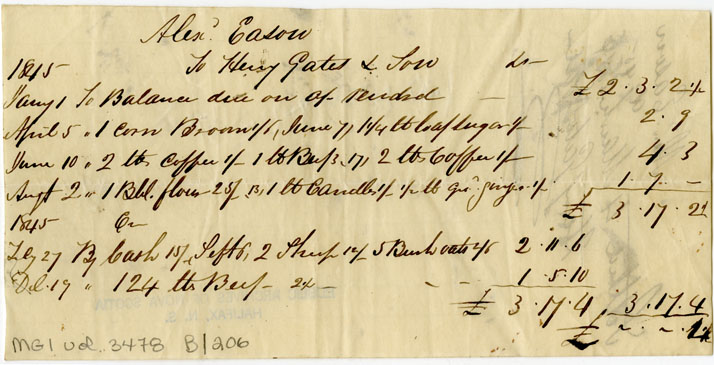 Alexr Eason
To Henry Gates & Son Dr
1845
Jany 1 To Balance due on a/c rendrd — £ 2.3.2½
April 5 " 1 corn Broom 1/6, June 7, 1¼ lb loaf sugar 1/ 2.9
June 10 " 2 lbs Coffee 1/ 1 lb 3, 17, 2 lbs Coffee 1/ 4.3
Augt 2 " 1 Bbl. flour 25/, 13, 1 lb Candles 1/ ½ lb grd ginger 1/ 1.7.–
£ 3.17.2½
1845 Cr
27 By Cash 15/, Sept 6, 2 Sheep 5 Bush oats 2/6 2.11.6
Dec. 19 " 124 lbs Beef 2½ – – 1.5.10
£ 3.17.4 3.17.4
£
MG1 vol. 3478 B/206
PUBLIC ARCHIVES OF NOVA SCOTIA
HALIFAX, N. S.